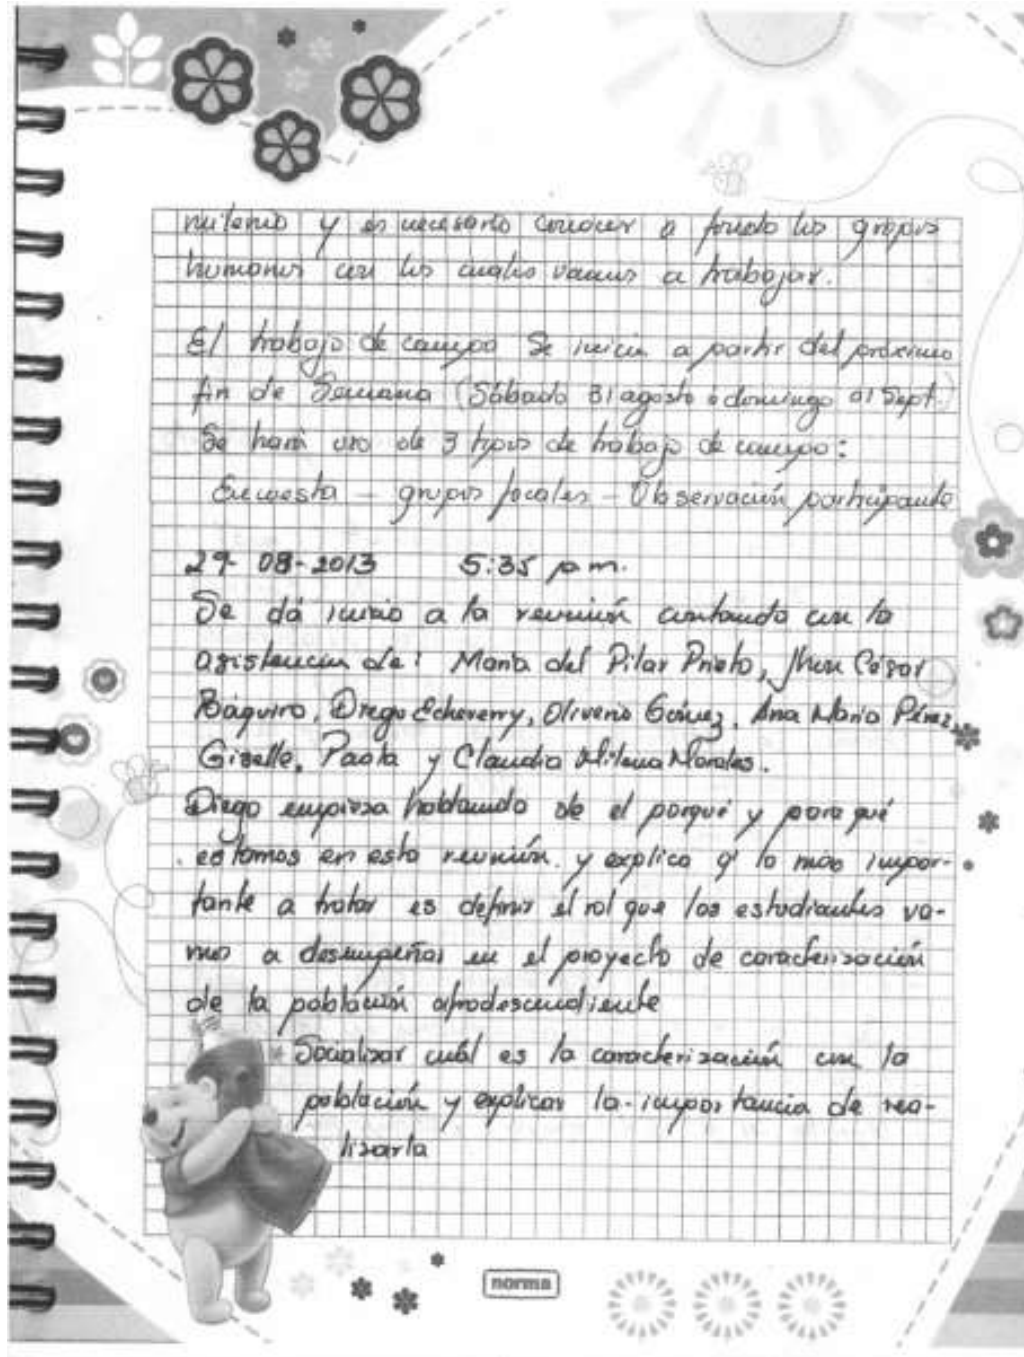 milenio y es necesario conocer a fondo los grupos
humanos con los cuales vamos a trabajar.
El trabajo de campo se inicia a partir del próximo
fin de Semana (Sábado 31 agosto o domingo 01 Sept.)
Se hará uso de 3 tipos de trabajo de campo:
Encuesta - grupos focales - Observación participante
29-08-2013 5:35 p.m.
Se dá inicio a la reunión contando con la
asistencia de: María del Pilar Prieto, Jhon César
Báquiro, Diego Echeverry, Oliverio Gómez, Ana María Pérez,
Giselle, Paola y Claudia Milena Morales.
Diego empieza hablando de el porqué y para qué
estamos en esta reunión. y explica q' lo más impor-
tante a tratar es definir el rol que los estudiantes va-
mos a desempeñar en el proyecto de caracterización
de la población afrodescendiente
* Socializar cuál es la caracterización con la
población y explicar la importancia de rea-
lizarla
norma